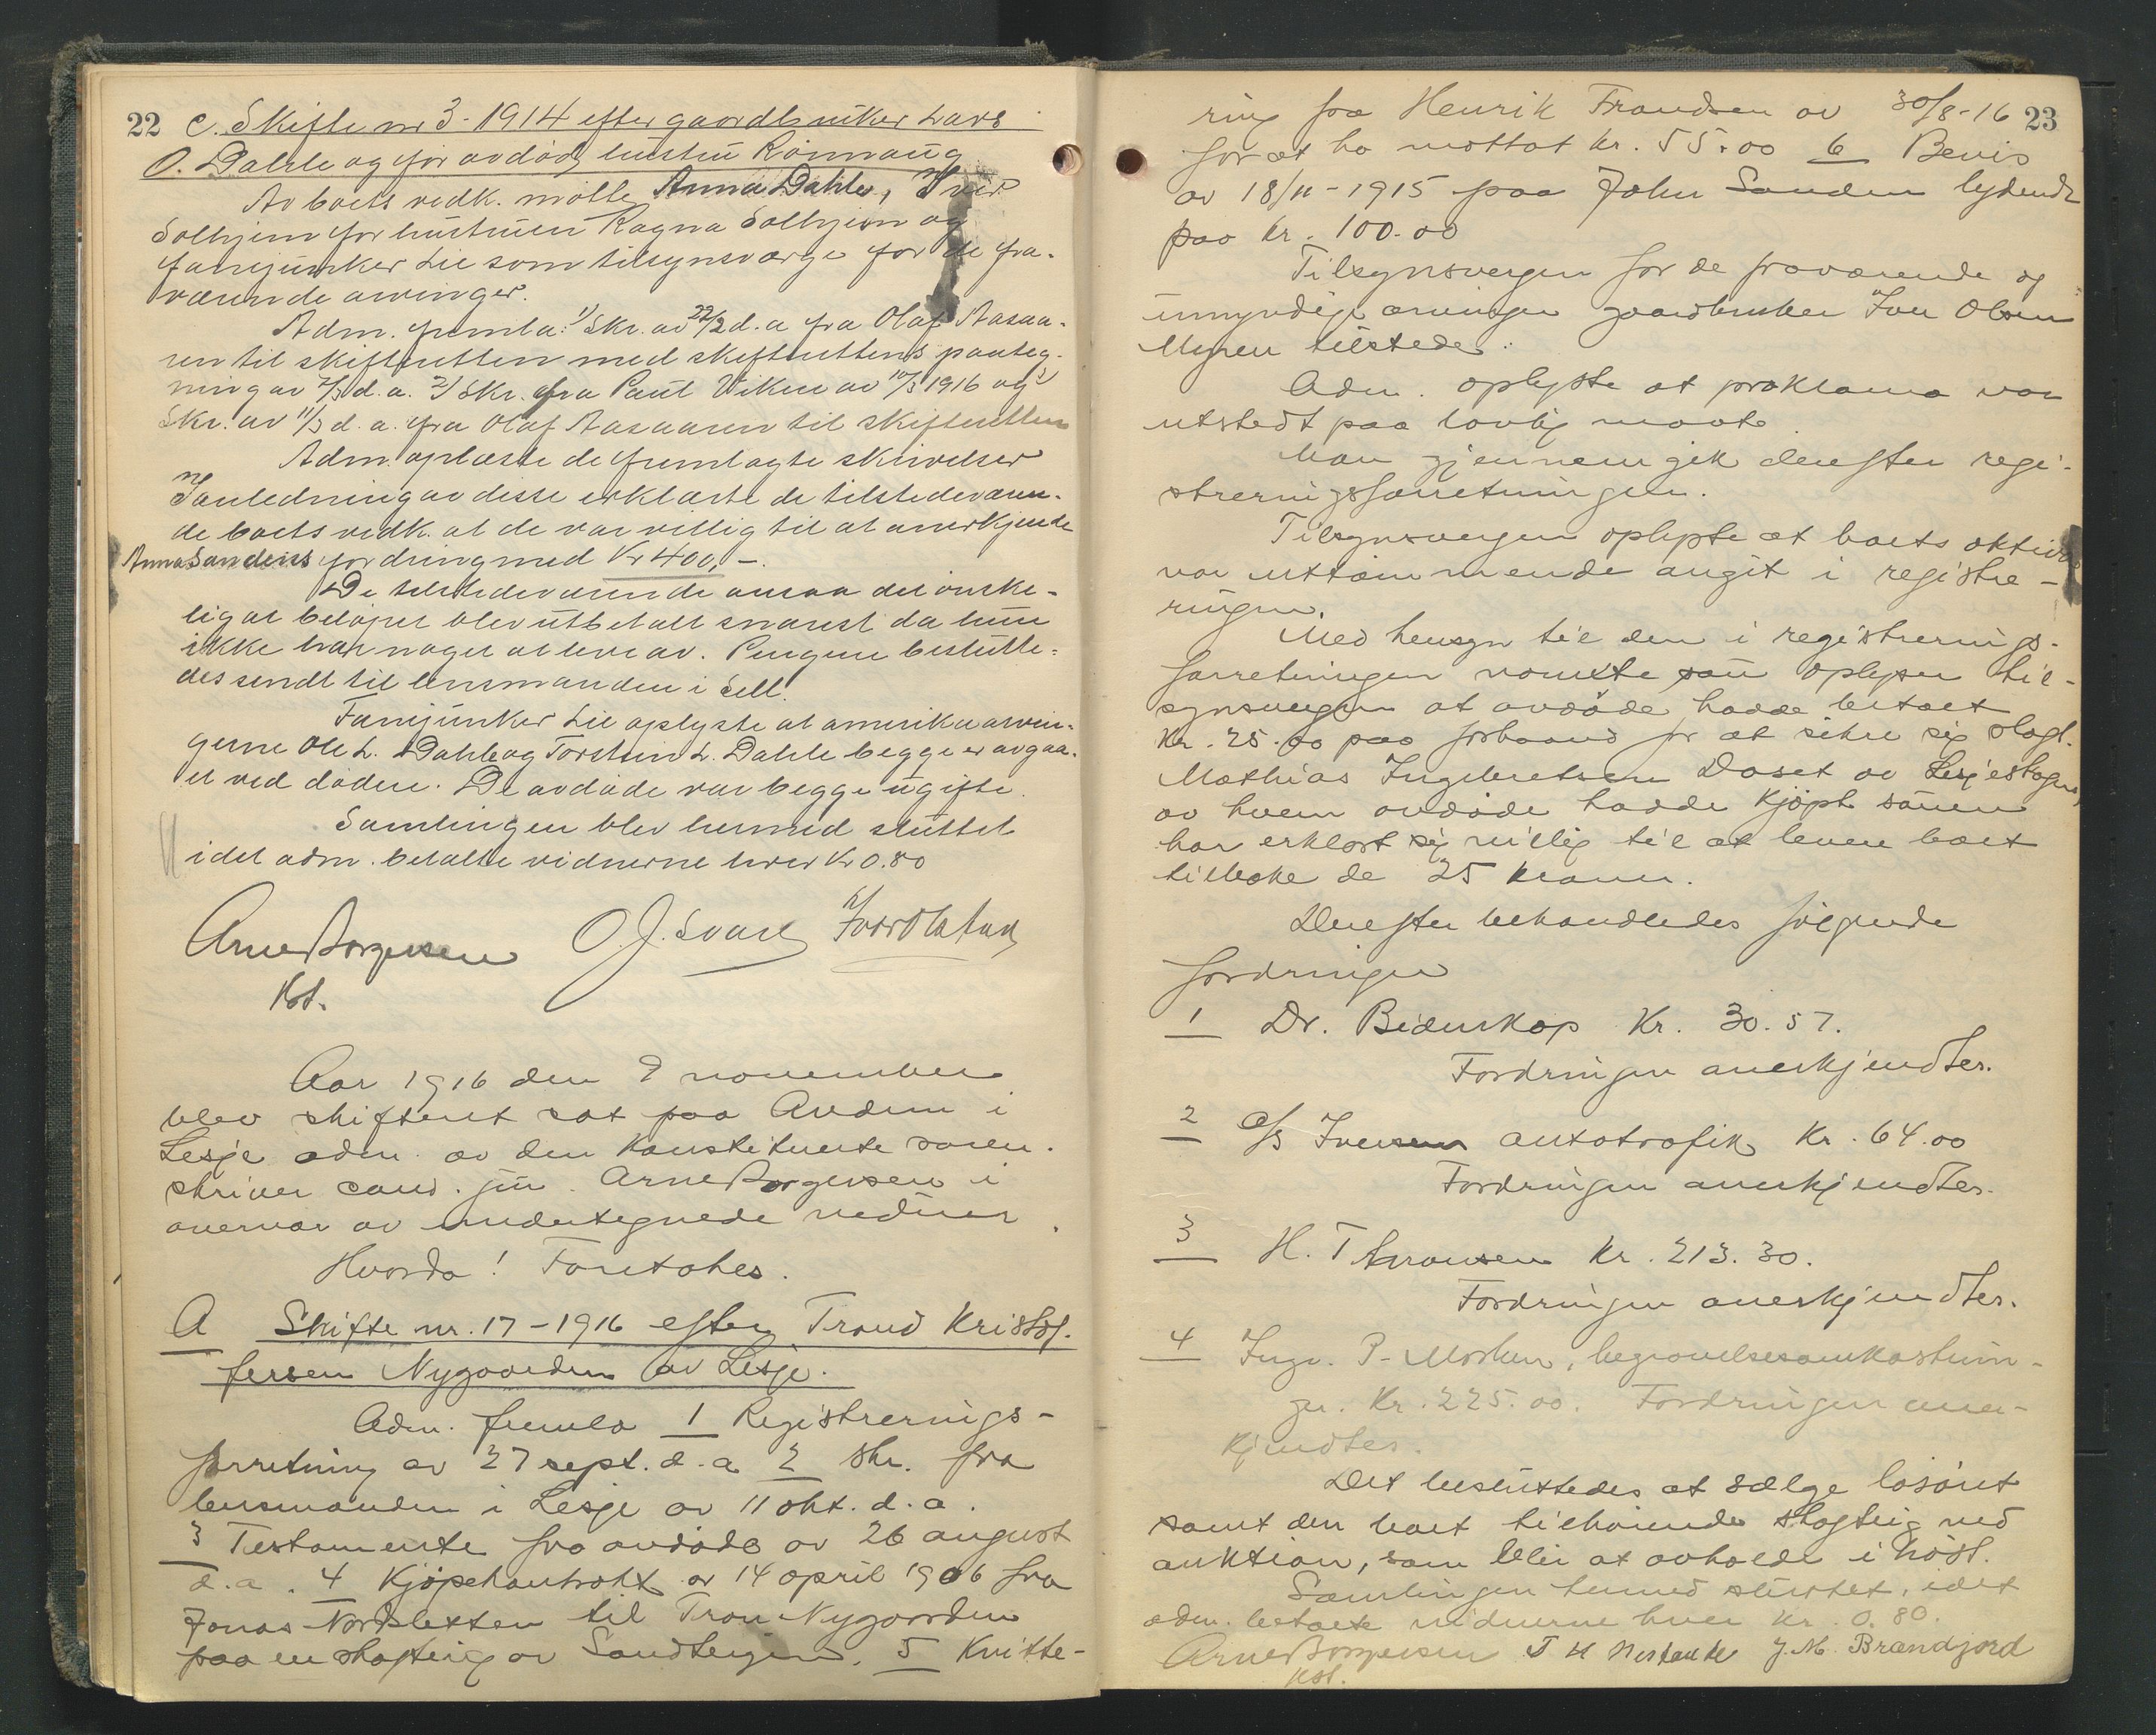 22 C. Skifte nr 3-1914 efter gaardbruker Lars
O. Dahle og før avdød hustru Rønnaug
Av boets vedk. møtte Anna Dahle, Iver
Solhjem for hustruen Ragna Solhjem og
fanejunker Lie som tilsynsværge for de fra-
værende arvinger.
Adm. fremla: 1/ Skr. av 22/2 d.a fra Olaf Aasaa-
ren til skifteretten med skifterettens paateg-
ning av 2/3 d.a. 2/ Skr. fra Paul Viken av 10/3 1916 og 3/
Skr. av 11/3 d.a. fra Olaf Aasaaren til skifteretten
Adm. oplæste de fremlagte skrivelser
I anledning av disse erklærte de tilstedeværen-
de boets vedk. at de var villig til at anerkjende
Anna Sandens fordring med Kr 400,-.
De tilstedeværende ansaa det ønske-
lig at beløpet blev utbetalt snarest da hun
ikke har noget at leve av. Pengene beslutte-
des sendt til lensmanden i Sell.
Fanejunker Lie oplyste at amerikaarvin-
gerne Ole L. Dahle og Torstein L. Dahle begge er avgaa-
et ved døden. De avdøde var begge ugifte.
Samlingen blev hermed sluttet
idet adm. betalte vidnerne hver Kr 0.80
Arne Borgersen O. J. Svare
Kst.
Aar 1916 den 9 november
blev skifteret sat paa Avdem i
Lesje adm. av den konstituerte soren-
skriver cand. jur. Arne Borgersen i
overvær av undertegnede vidner.
Hvorda! Foretokes.
A Skifte nr. 17-1916 efter Trond Kristof-
fersen Nygaarden av Lesje.
Adm. fremla 1 Registrerings-
forretning av 27 sept. d.a 2 Skr. fra
lensmanden i Lesje av 11 okt. d.a.
3 Testamente fra avdøde av 26 august
d.a. 4 Kjøpekontrakt av 14 april 1906 fra
Jonas Nordsletten til Tron Nygaarden
paa en skogteig av Sandteigen. 5 Kvitte-
23
ring fra Henrik Frandsen av 30/8-16
for at ha mottat kr. 55.00 6 Bevis
av 18/11-1915 paa John Sanden lydende
paa kr. 100.00
Tilsynsvergen for de fraværende og
umyndige arvinger gaardbruker Iver Olsen
Myren tilstede.
Adm. oplyste at proklama var
utstedt paa lovlig maate.
Man gjennemgik derefter regi-
streringsforretningen.
Tilsynsvergen oplyste at boets aktiva
var uttømmende angit i registre-
ringen.
Med hensyn til den i registrerings-
forretningen nævnte sau oplyser til-
synsvergen at avdøde hadde betalt
Kr. 25.00 paa forhaand for at sikre sig slagt.
Mathias Ingebretsen Daset av Lesjeskogen,
av hvem avdøde hadde kjøpt sauen
har erklært sig villig til at levere boet
tilbake de 25 kroner.
Derefter behandledes følgende
fordringer
1 Dr. Bidenkap Kr. 30.57.
Fordringen anerkjendtes.
2 A/S Iversen autotrafik Kr. 64.00
Fordringen anerkjendtes.
3 H. T Aaronsen Kr. 213.30.
Fordringen anerkjendtes.
4 Ingv. P. Morken, begravelsesomkostnin-
ger. Kr. 225.00. Fordringen aner-
kjendtes.
Det besluttedes at sælge løsøret
samt den boet tilhørende skogteig ved
auktion, som blir at avholde i høst.
Samlingen hermed sluttet, idet
adm. betalte vidnerne hver kr. 0.80.
Arne Borgersen T H Nestande J. M. Brandjord
Kst.